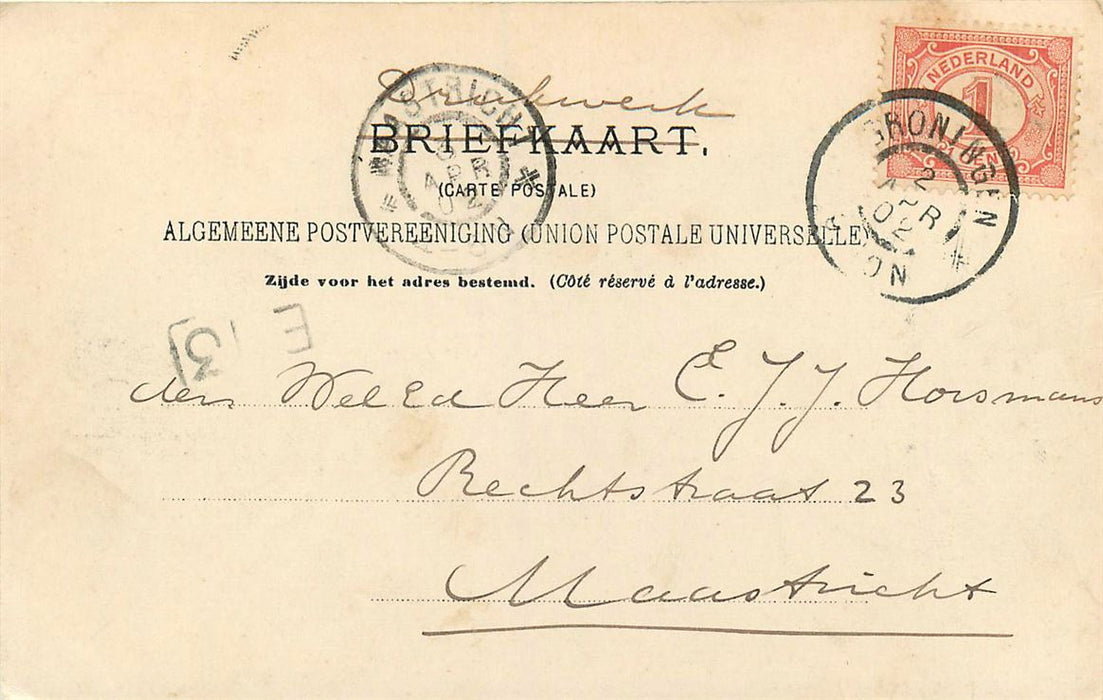 NEDERLAND
1
CEN
Drukwerk
BRIEFKAART.
(CARTE POSTALE)
ALGEMEENE POSTVEREENIGING (UNION POSTALE UNIVERSELLE)
Zijde voor het adres bestemd. (Côté réservé à l'adresse.)
GRONINGEN
2
APR
02
STATION
MAASTRICHT
3
APR
02
E
3
den Wel Ed Heer E. J. J. Horsmans
Rechtstraat 23
Maastricht